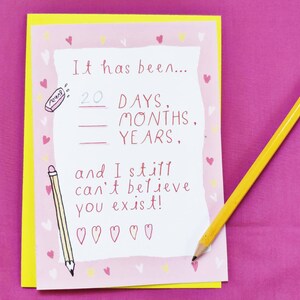 It has been...
20 DAYS,
___ MONTHS,
___ YEARS,
and I still
can't believe
you exist!